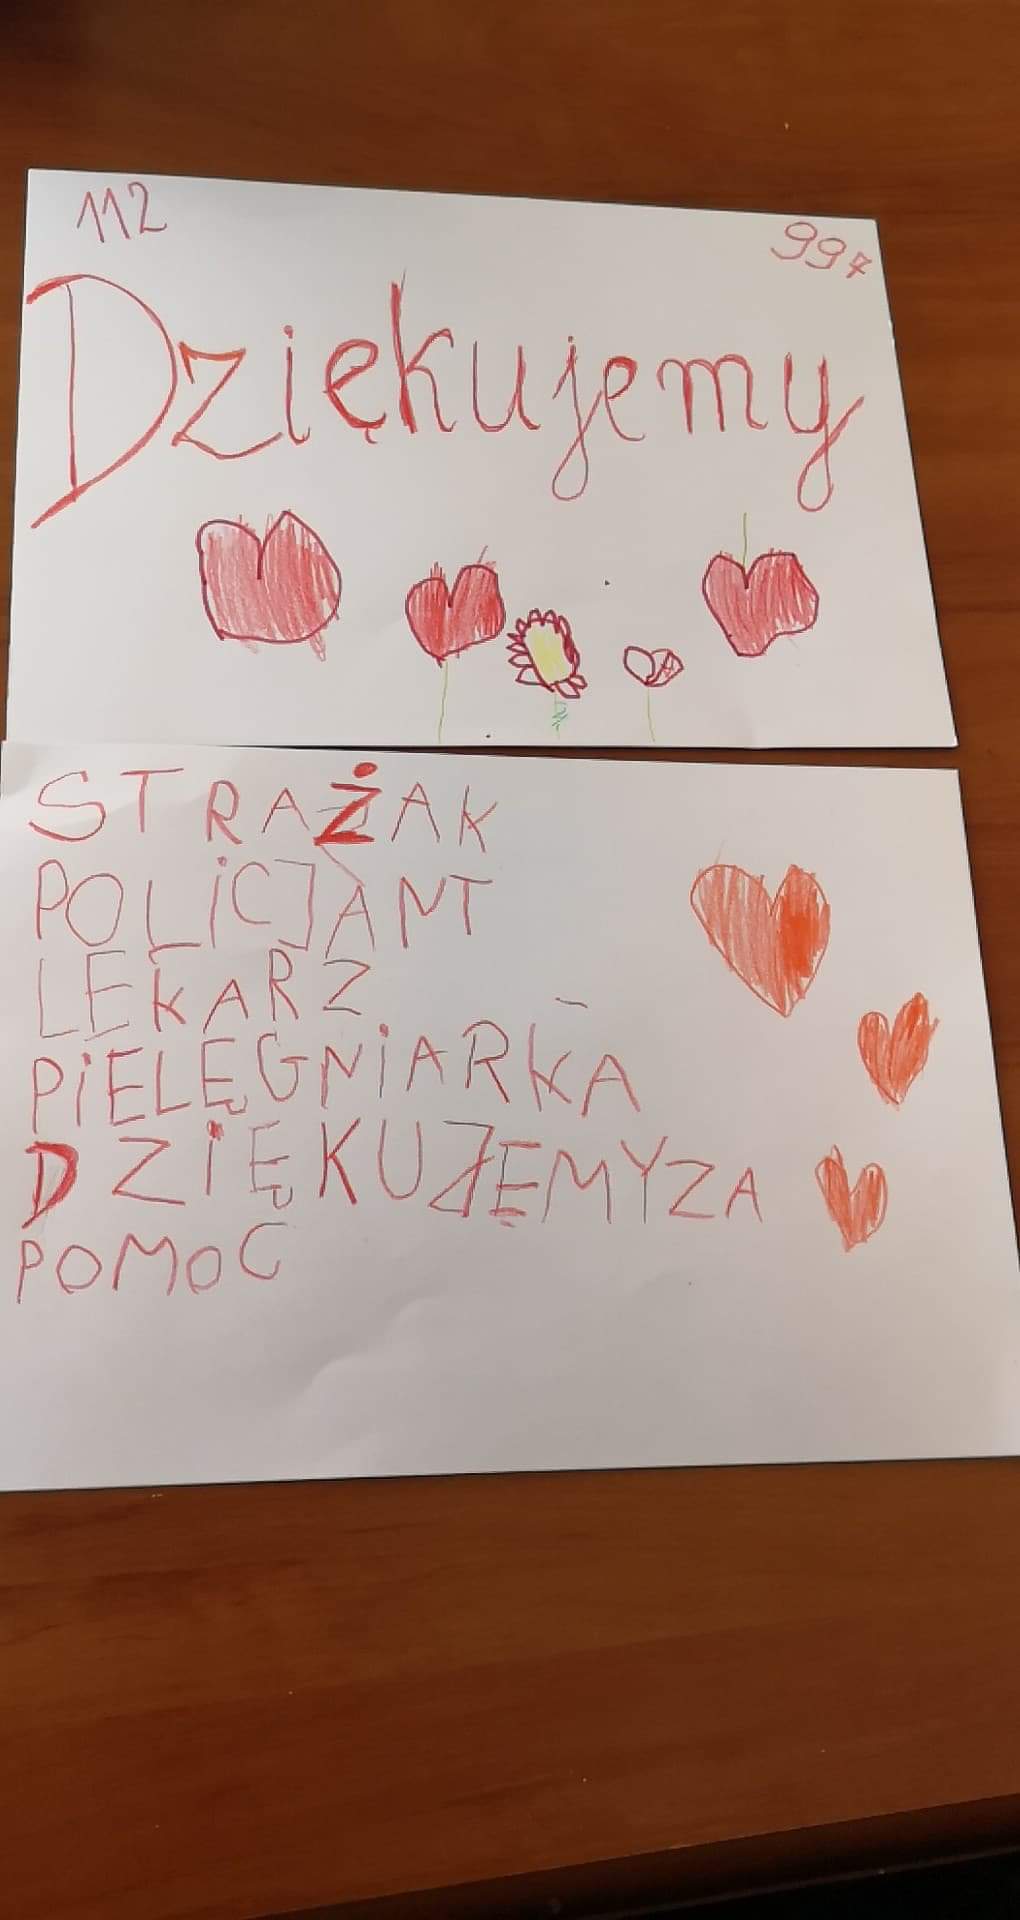 112 997
Dziękujemy
STRAŻAK
POLiCJANT
LEKARZ
PiELĘGNiARKA
DZiĘKUJĘMYZA
POMOC